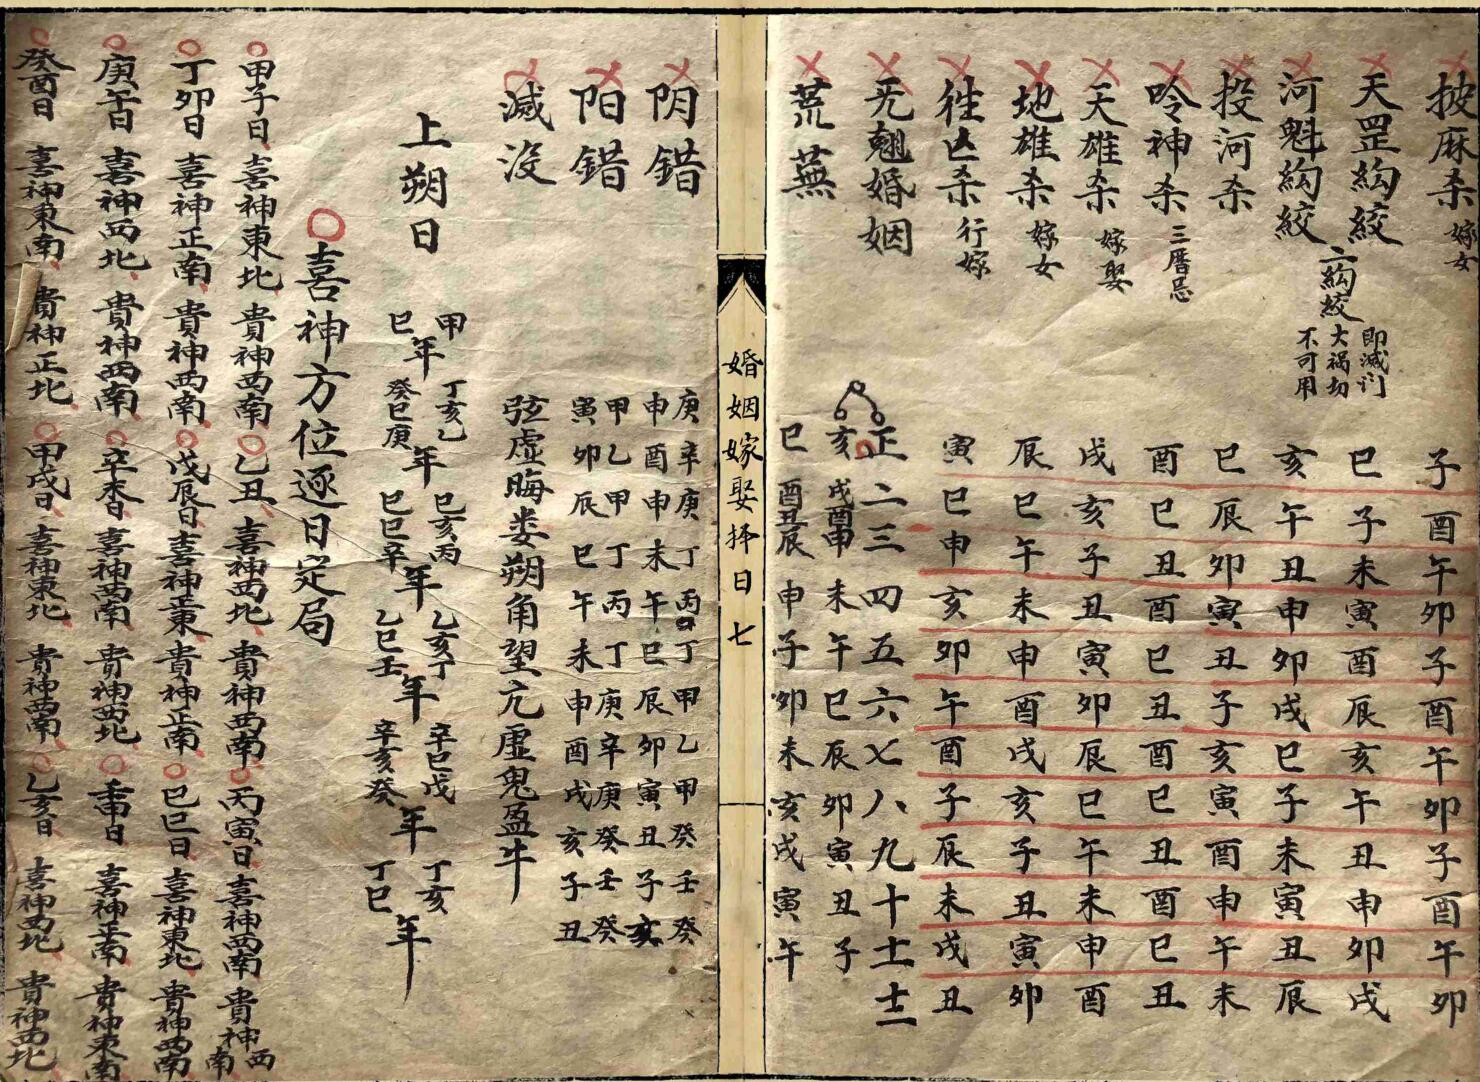 披麻杀 嫁女 子酉午卯子酉午卯子酉午卯
天罡勾绞 巳子未寅酉辰亥午丑申卯戌
二勾绞 即滅门大禍切不可用
河魁勾绞 亥午丑申卯戌巳子未寅丑辰
投河杀 巳辰卯寅丑子亥寅酉申午未
吟神杀 三曆忌 酉巳丑酉巳丑酉巳丑酉巳丑
天雄杀 嫁娶 戌亥子丑寅卯辰巳午未申酉
地雄杀 嫁女 辰巳午未申酉戌亥子丑寅卯
徃亡杀 行嫁 寅巳申亥卯午酉子辰未戌丑
无翘婚姻 正二三四五六七八九十十一十二
亥戌酉申未午巳辰卯寅丑子
荒蕪 巳酉丑辰申子卯未亥戌寅午
婚姻嫁娶择日 七
阴错 庚辛庚丁丙丁甲乙甲癸壬癸
申酉申未午巳辰卯寅丑子亥
阳错 甲乙甲丁丙丁庚辛庚癸壬癸
寅卯辰巳午未申酉戌亥子丑
滅没 弦虚晦娄朔角望亢虚鬼盈牛
上朔日 甲巳年 丁亥癸巳 乙庚年 己亥巳巳 丙辛年 乙亥乙巳 丁壬年 辛巳辛亥 戊癸年 丁亥丁巳 年
喜神方位逐日定局
甲子日 喜神東北 貴神西南 乙丑 喜神西北 貴神西南 丙寅日 喜神西南 貴神西南
丁卯日 喜神正南 貴神西南 戊辰日 喜神東 貴神正南 巳巳日 喜神東北 貴神西南
庚午日 喜神西北 貴神西南 辛未日 喜神西南 貴神西北 壬申日 喜神正南 貴神東南
癸酉日 喜神東南 貴神正北 甲戌日 喜神東北 貴神西南 乙亥日 喜神西北 貴神西北